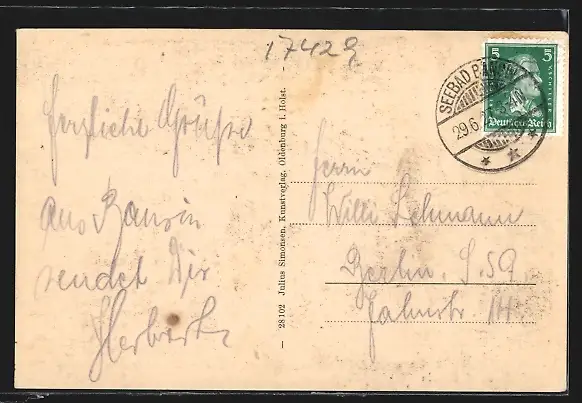 17429
Herzliche Grüße
aus Bansin
sendet Dir
Herbert
28102 Julius Simonsen, Kunstverlag, Oldenburg i. Holst.
SEEBAD BANSIN
29.6.
5 5
F.v.SCHILLER
Deutsches Reich
Herrn
Willi Lehmann
Berlin. S.59
Jahnstr. 14